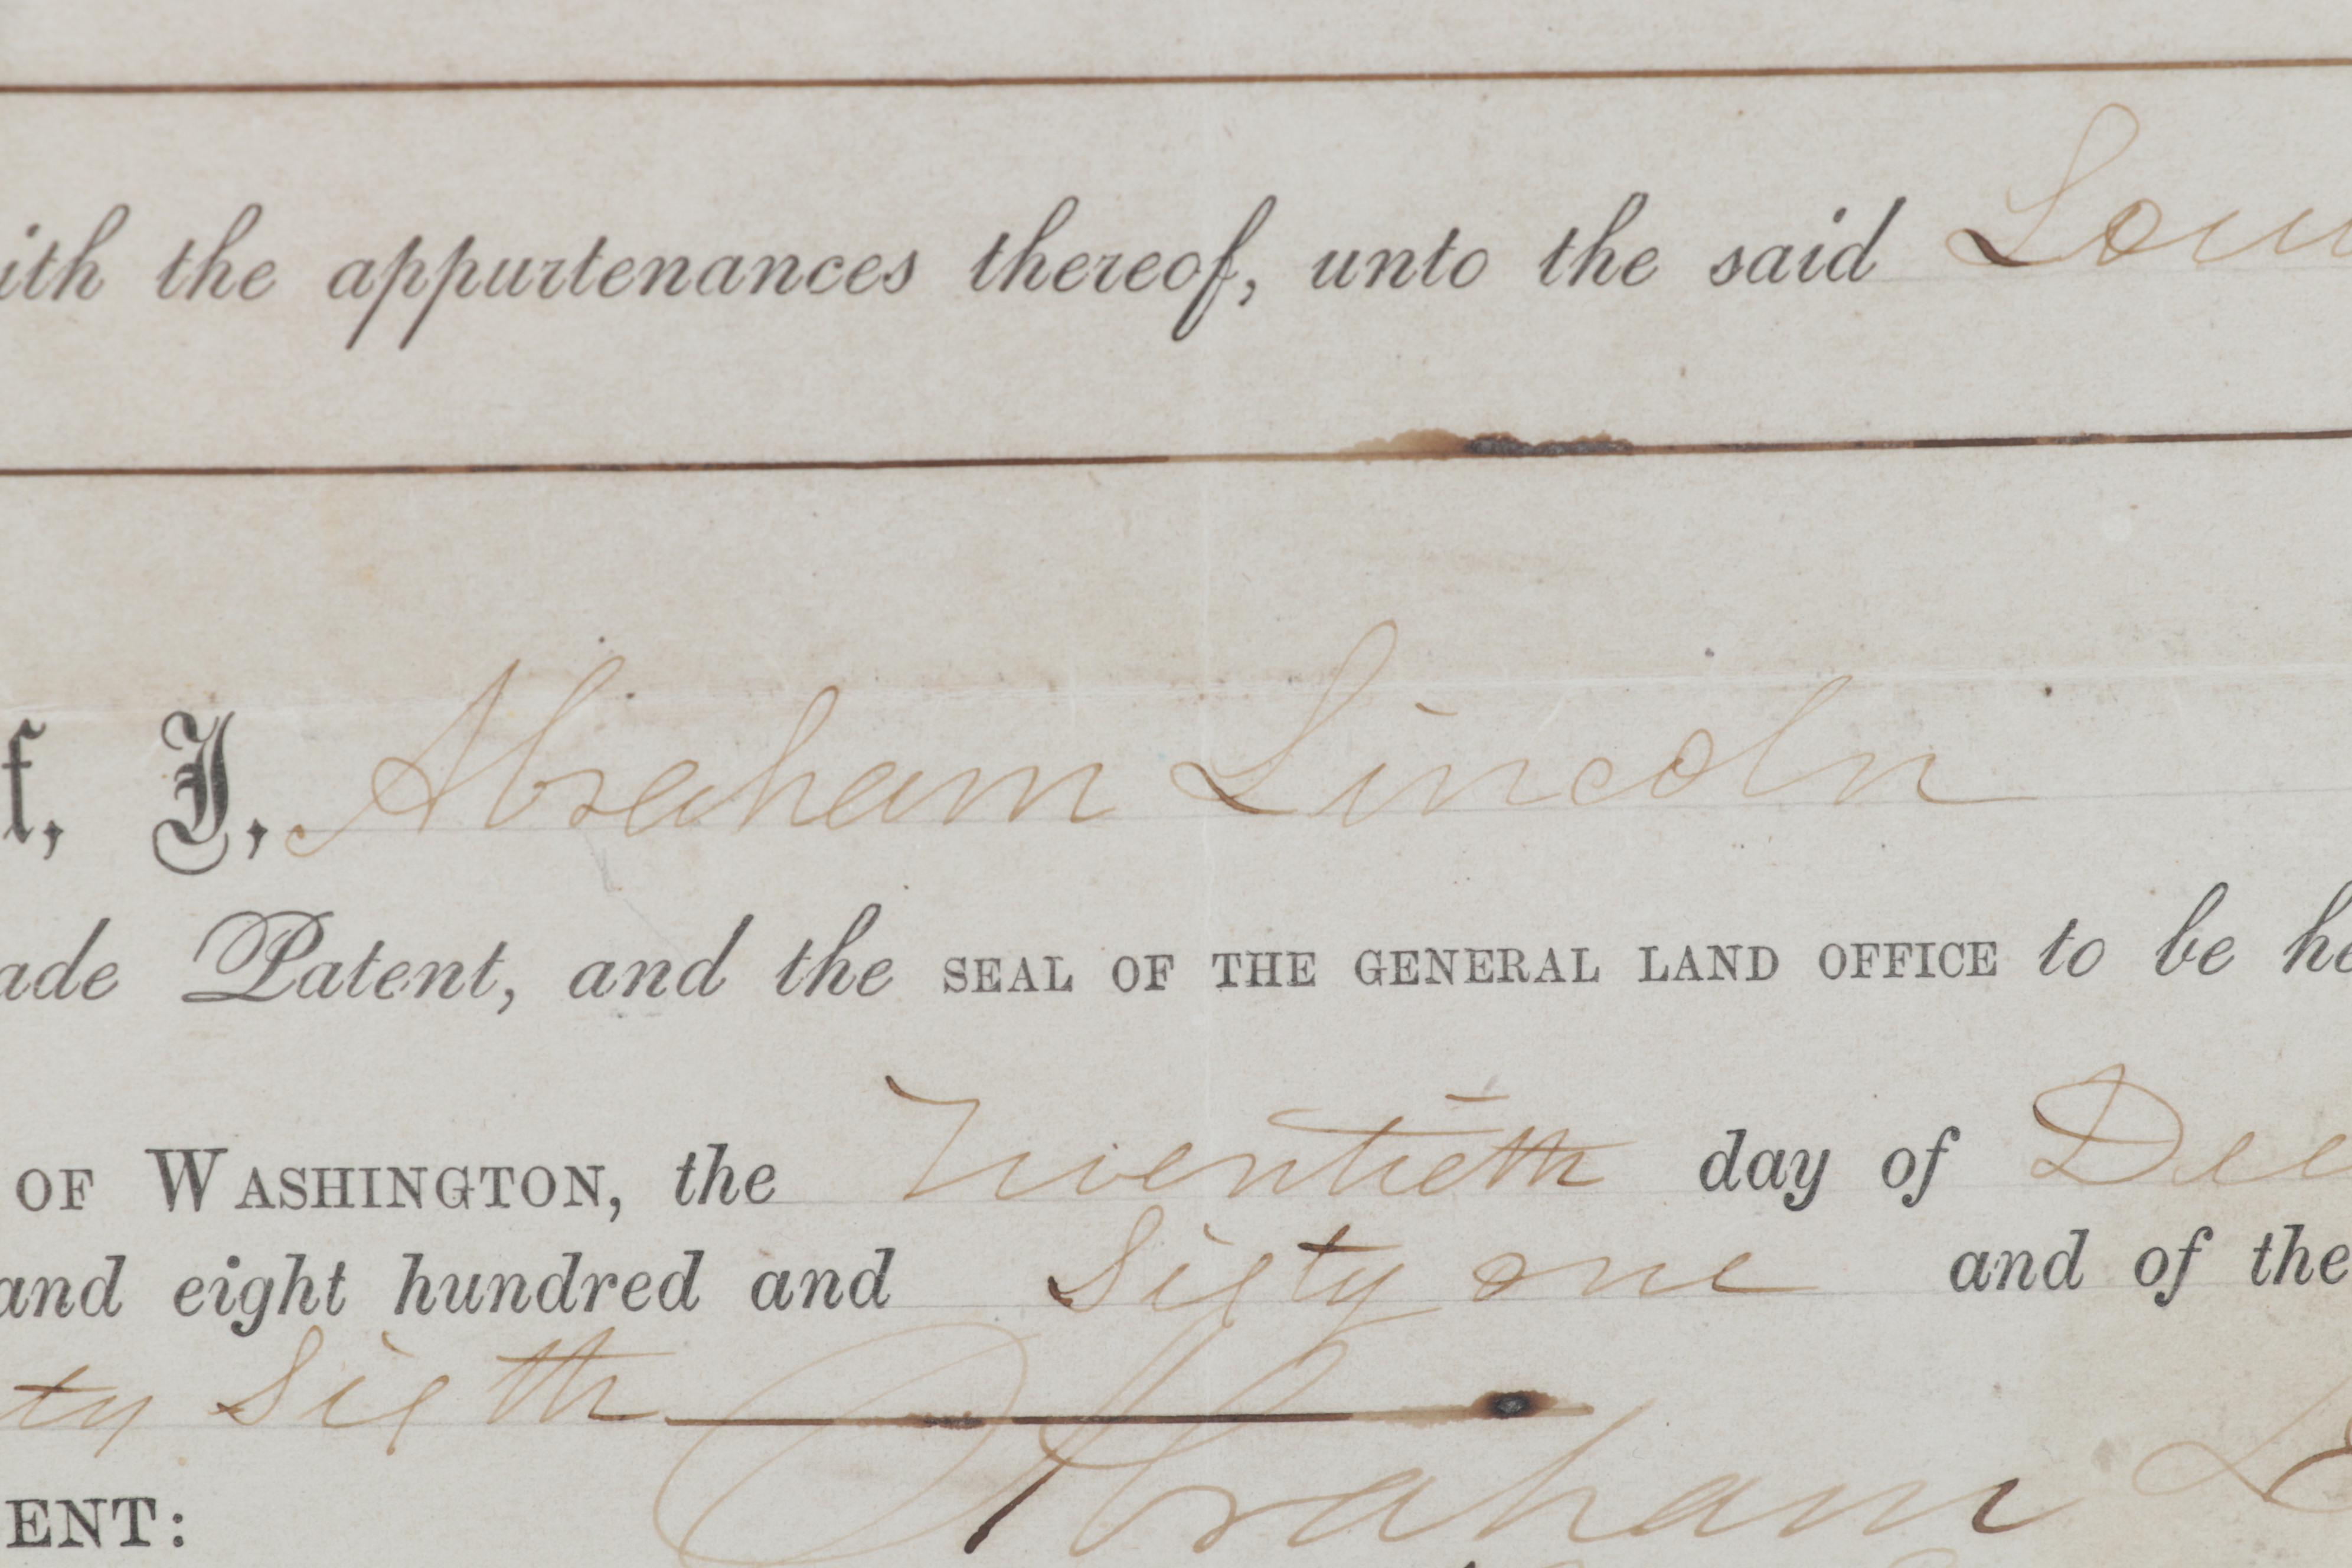 ith the appurtenances thereof, unto the said Loui
f, I, Abraham Lincoln
ade Patent, and the SEAL OF THE GENERAL LAND OFFICE to be he
OF WASHINGTON, the Twentieth day of Dec
and eight hundred and Sixty one and of the
ty Sixth
ENT: Abraham L